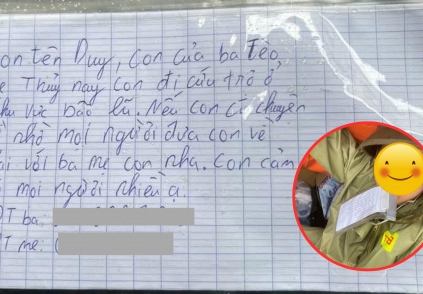 on tên Duy, con của ba Tèo,
Thủy nay con đi cứu trợ ở
khu vực bão lũ. Nếu con có chuyện
nhờ mọi người đưa con về
với ba mẹ con nha. Con cảm
mọi người nhiều ạ.
ĐT ba:
ĐT mẹ: